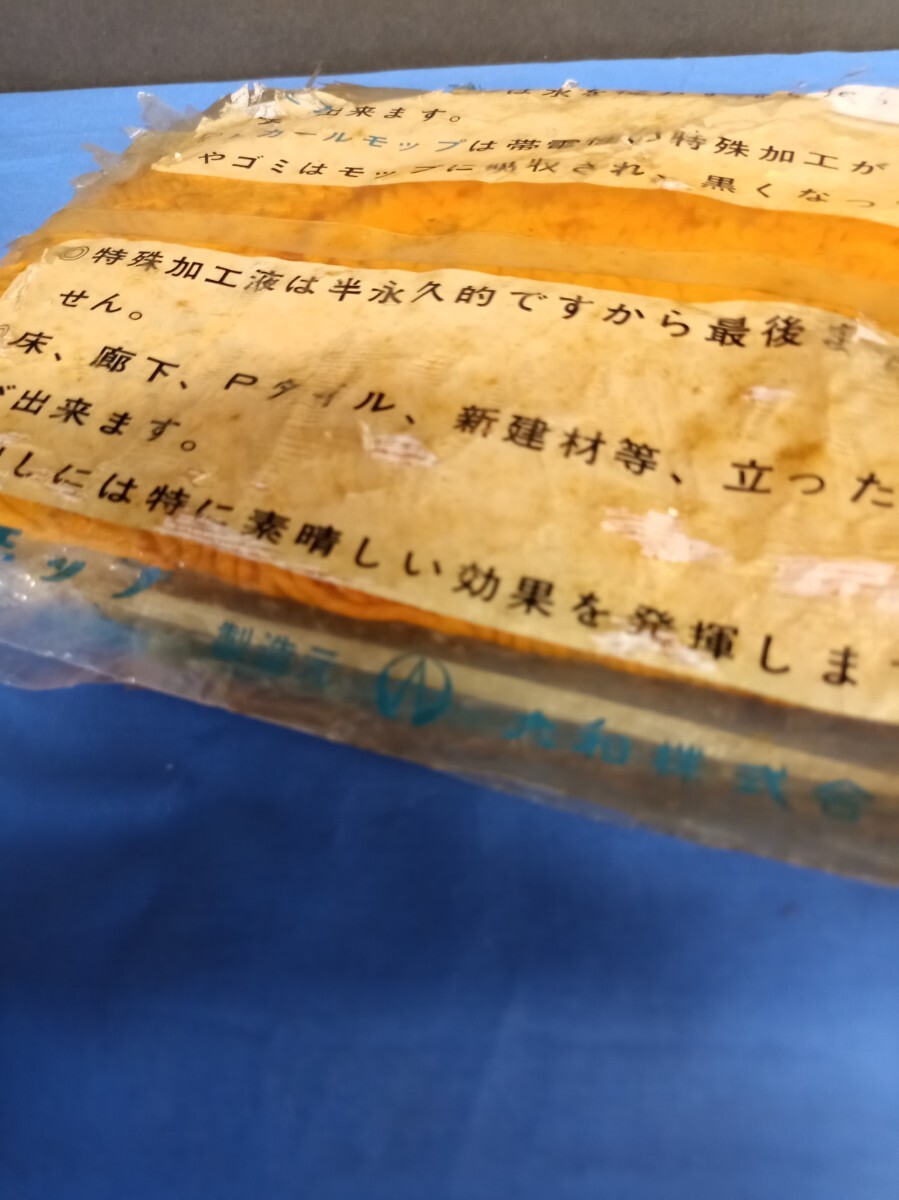 出来ます。
カールモップは帯電 特殊加工が
やゴミはモップに吸収され、黒くなっ
◎特殊加工液は半永久的ですから最後ま
せん。
◎床、廊下、Pタイル、新建材等、立った
が出来ます。
しには特に素晴しい効果を発揮しま
モップ
製造元 大和株式会